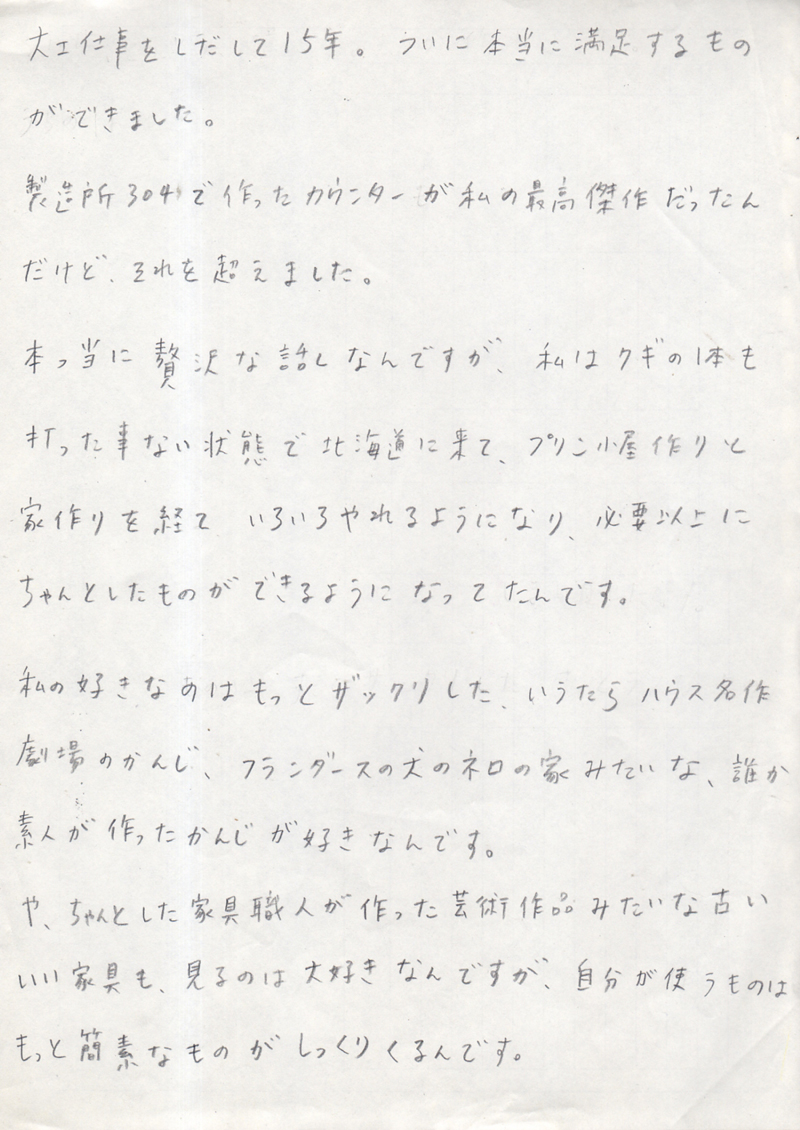 大工仕事をしだして15年。ついに本当に満足するもの
ができました。
製造所304で作ったカウンターが私の最高傑作だったん
だけど、それを超えました。
本っ当に贅沢な話しなんですが、私はクギの1本も
打った事ない状態で北海道に来て、プリン小屋作りと
家作りを経て いろいろやれるようになり、必要以上に
ちゃんとしたものができるようになってたんです。
私の好きなのはもっとザックリした、いうたらハウス名作
劇場のかんじ、フランダースの犬のネロの家みたいな、誰か
素人が作ったかんじが好きなんです。
や、ちゃんとした家具職人が作った芸術作品みたいな古い
いい家具も、見るのは大好きなんですが、自分が使うものは
もっと簡素なものがしっくりくるんです。